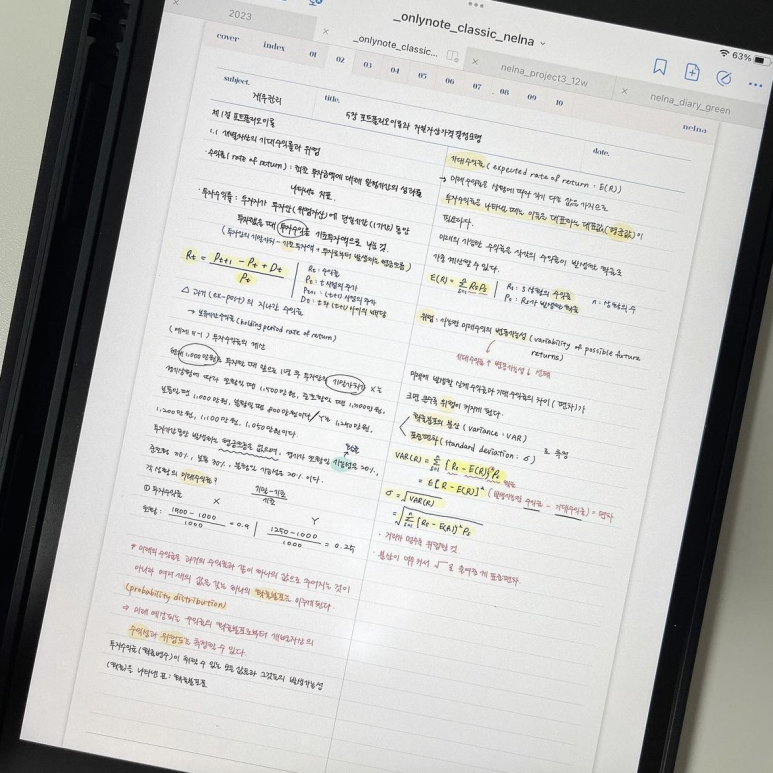 2023
_onlynote_classic_nelna
63%
_onlynote_classic...
nelna_project3_12w
nelna_diary_green
cover index 01 02 03 04 05 06 07 08 09 10
nelna
subject.
title.
date.
재무관리
5장 포트폴리오이론과 자본자산가격결정모형
제1절 포트폴리오이론
1.1 개별자산의 기대수익률과 위험
·수익률(rate of return) : 최초 투자금액에 대해 일정기간의 성과를
나타내는 지표
·투자수익률 : 투자자가 투자안(위험자산)에 단일기간(1기간) 동안
투자했을 때 투자수익을 기초투자액으로 나눈 것.
Rt = Pt+1 - Pt + Dt / Pt
Rt : 수익률
Pt : t시점의 주가
Pt+1 : (t+1)시점의 주가
△ 과거(ex-post)의 지나간 수익률
→ 보유기간수익률(holding period rate of return)
(예제 5-1) 투자수익률의 계산
현재 1,000만원을 투자한 때 앞으로 1년 후 투자안의 기말가치 X는
경기상황에 따라 호황일 때 1,500만원, 준호황일 때 1,200만원,
보통일 때 1,000만원, 불황일 때 800만원이다/ Y는 1,250만원,
1,200만원, 1,100만원, 1,050만원이다.
투자기간동안 발생하는 현금흐름은 없으며, 경기가 호황일 가능성은 20%,
확률
준호황 30%, 보통 30%, 불황일 가능성은 20%이다.
각 상황의 기대수익률?
① 투자수익률
기말-기초 / 기초
X
Y
호황 :
1250-1000 / 1000 = 0.25
* 미래의 수익률은 과거의 수익률과 같이 하나의 값으로 주어지는 것이
아니라 여러 개의 값을 갖는 하나의 확률분포로 이루어진다.
(probability distribution)
⇒ 미래 예상되는 수익률의 확률분포로부터 개별자산의
수익성과 위험도를 측정할 수 있다.
투자수익률(확률변수)이 취할 수 있는 모든 값들과 그것들의 발생가능성
(확률)을 나타낸 표 : 확률분포표
기대수익률(expected rate of return : E(R))
→ 미래수익률은 상황에 따라 각기 다른 값을 가지므로
투자수익률을 나타낼 때는 이들을 대표하는 대표값(평균값)이
필요하다.
미래의 가능한 수익률을 각각의 수익률이 발생할 확률로
가중 계산할 수 있다.
E(R) = Σ RsPs
Rs : s상황의 수익률
Ps : Rs가 발생할 확률
n : 상황의 수
위험 : 가능한 미래수익의 변동가능성(variability of possible future
returns)
미래에 발생할 실제수익률과 기대수익률의 차이(편차)가
크면 클수록 위험이 커지게 된다.
확률분포의 분산(variance : VAR)
표준편차(standard deviation : σ)
로 측정
VAR(R) = Σ [Rs - E(R)]²Ps
= E[R - E(R)]²
σ = √VAR(R)
= √Σ [Rs - E(R)]²Ps